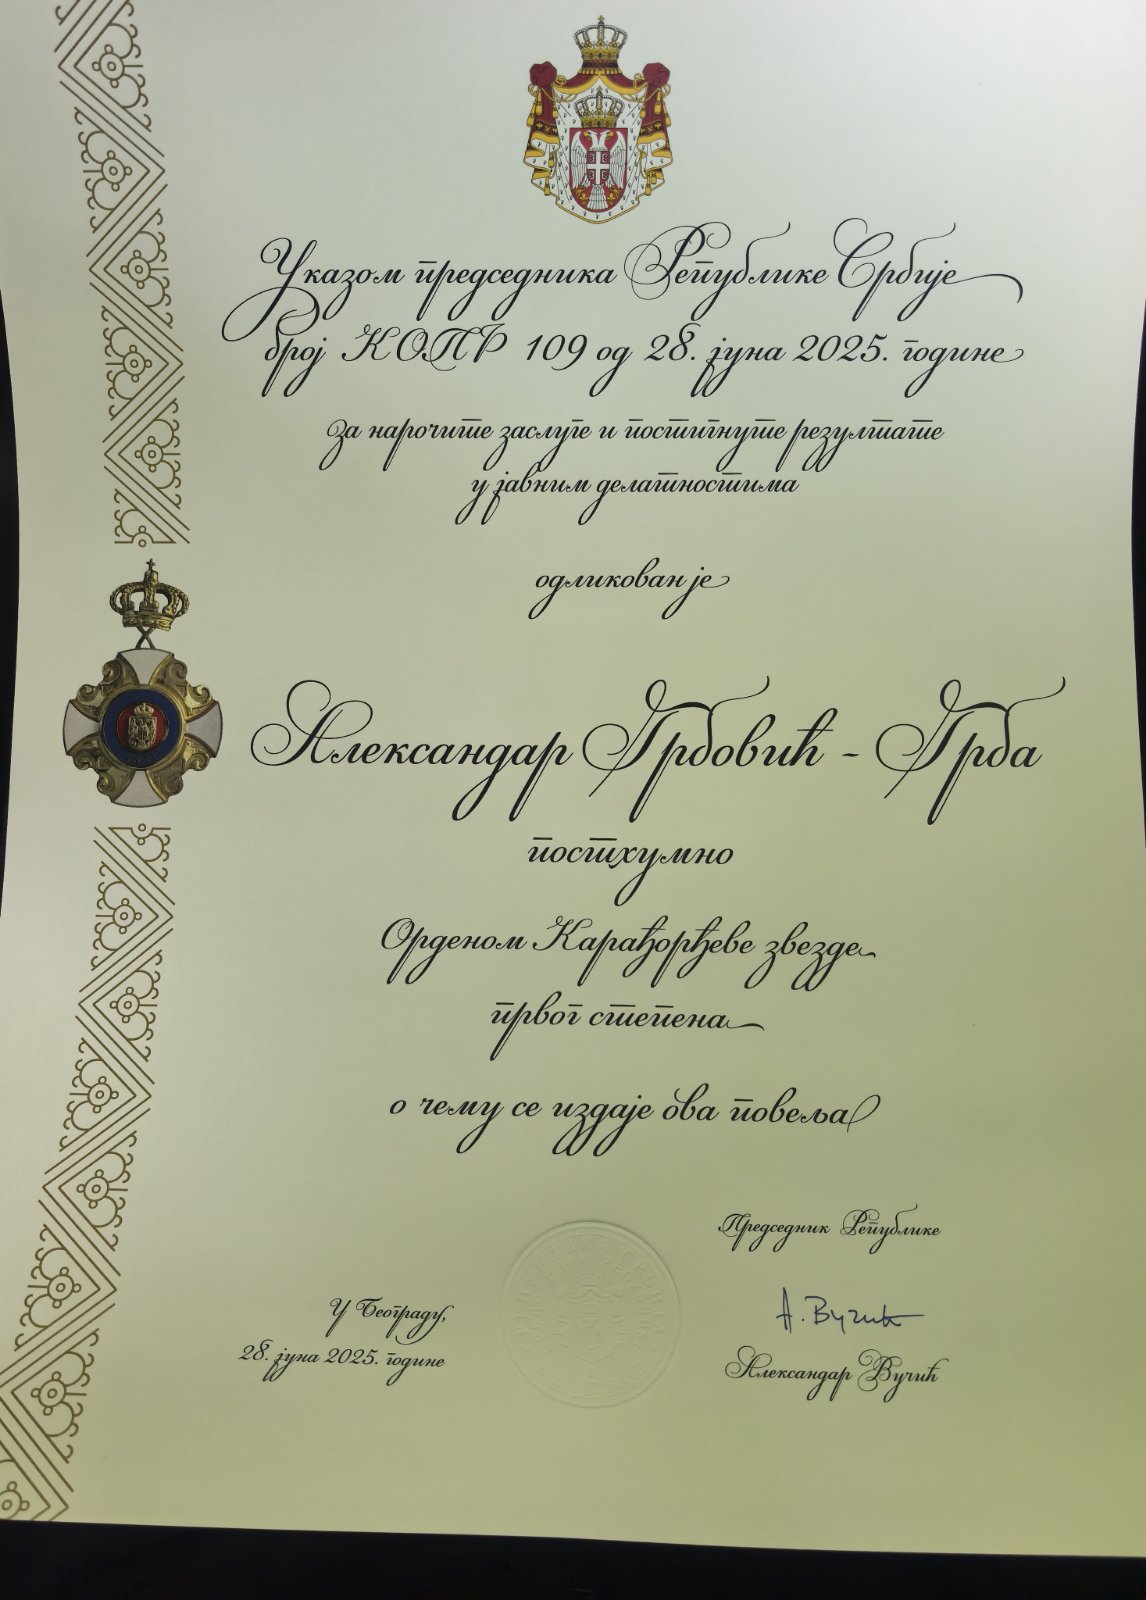 Указом председника Републике Србије
број КОПР 109 од 28. јуна 2025. године
за нарочите заслуге и постигнуте резултате
у јавним делатностима
одликован је
Александар Грбовић - Грба
постхумно
Орденом Карађорђеве звезде
првог степена
о чему се издаје ова повеља
Председник Републике
А. Вучић
Александар Вучић
У Београду,
28. јуна 2025. године